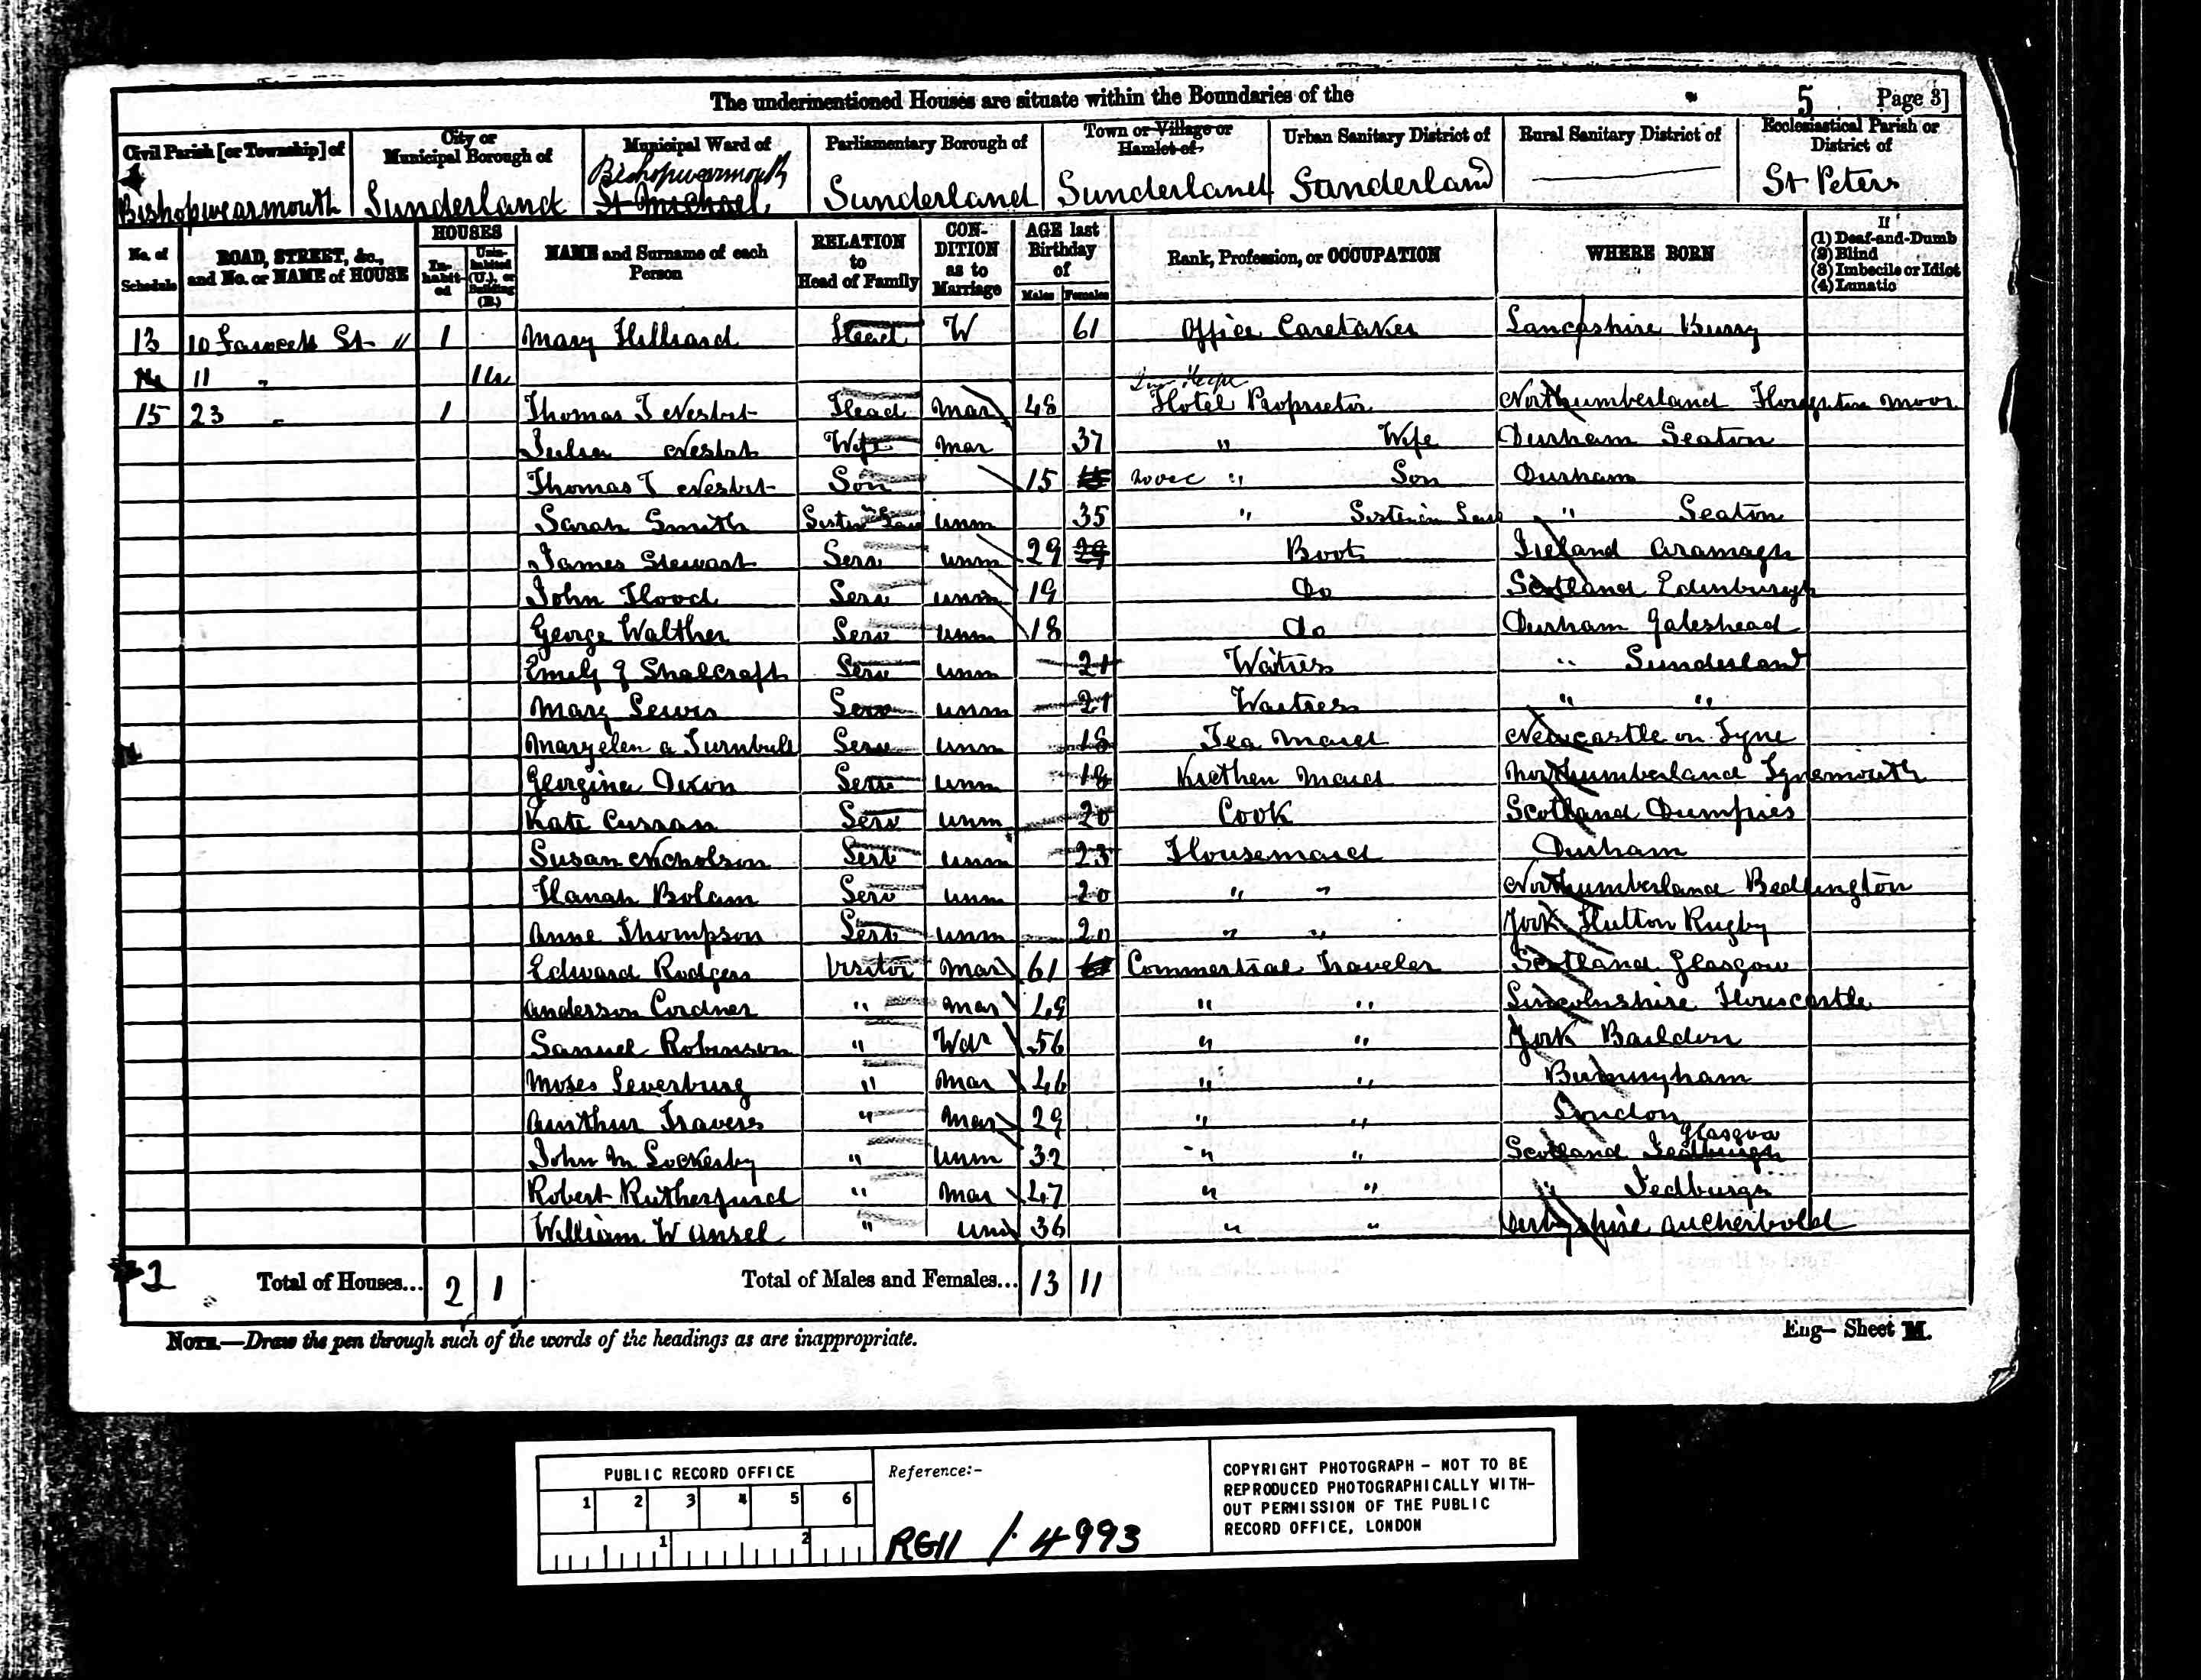 The undermentioned Houses are situate within the Boundaries of the 5 Page 3]
Civil Parish [or Township] of
Bishopwearmouth
City or Municipal Borough of
Sunderland
Municipal Ward of
Bishopwearmouth
St Michael
Parliamentary Borough of
Sunderland
Town or Village or Hamlet of
Sunderland
Urban Sanitary District of
Sunderland
Rural Sanitary District of
Ecclesiastical Parish or District of
St Peters
No. of Schedule
ROAD, STREET, &c., and No. or NAME of HOUSE
HOUSES
Inhabited
Uninhabited (U.), or Building (B.)
NAME and Surname of each Person
RELATION to Head of Family
CONDITION as to Marriage
AGE last Birthday of
Males Females
Rank, Profession, or OCCUPATION
WHERE BORN
If
(1) Deaf-and-Dumb
(2) Blind
(3) Imbecile or Idiot
(4) Lunatic
13 10 Fawcett St 1 Mary Hilliard Head W 61 Office Caretaker Lancashire Burry
14 11 " 1 U
15 23 " 1 Thomas T Nesbit Head Mar 48 Hotel Proprietor Northumberland Houghton Moor
Julia Nesbit Wife Mar 37 " Wife Durham Seaton
Thomas T Nesbit Son 15 15 " Son Durham
Sarah Smith Sister in Law unm 35 " Sister in Law " Seaton
James Stewart Serv unm 29 29 Boots Ireland Aramagh
John Hood Serv unm 19 Do Scotland Edinburgh
George Walther Serv unm 18 Do Durham Gateshead
Emily J Shalcraft Serv unm 21 Waitress " Sunderland
Mary Lewis Serv unm 21 Waitress " "
Maryelen A Turnbull Serv unm 18 Tea Maid Newcastle on Tyne
Georgina Dixon Serv unm 18 Kicthen Maid Northumberland Tynemouth
Kate Curran Serv unm 20 Cook Scotland Dumfries
Susan Nicholson Serv unm 23 Housemaid Durham
Hanah Bolam Serv unm 20 " " Northumberland Bedlington
Anne Thompson Serv unm 20 " " York Hutton Rugby
Edward Rodgers Visitor Mar 61 61 Commertial Traveler Scotland Glasgow
Anderson Cordner " Mar 49 " " Lincolnshire Horncastle
Samuel Robinson " Wdr 56 " " York Baildon
Moses Leverburg " Mar 46 " " Burmingham
Aurthur Travers " Mar 29 " " London
Glasgow
John M Lockerby " unm 32 " " Scotland Jedburgh
Robert Rutherfurd " Mar 47 " " " Jedburgh
William W Ansel " unm 36 " " Derbyshire
2 Total of Houses... 2 1 Total of Males and Females... 13 11
NOTE.—Draw the pen through such of the words of the headings as are inappropriate.
Eng— Sheet M.
PUBLIC RECORD OFFICE
1 2 3 4 5 6
1 2
Reference:-
RG11 / 4993
COPYRIGHT PHOTOGRAPH - NOT TO BE
REPRODUCED PHOTOGRAPHICALLY WITH-
OUT PERMISSION OF THE PUBLIC
RECORD OFFICE, LONDON